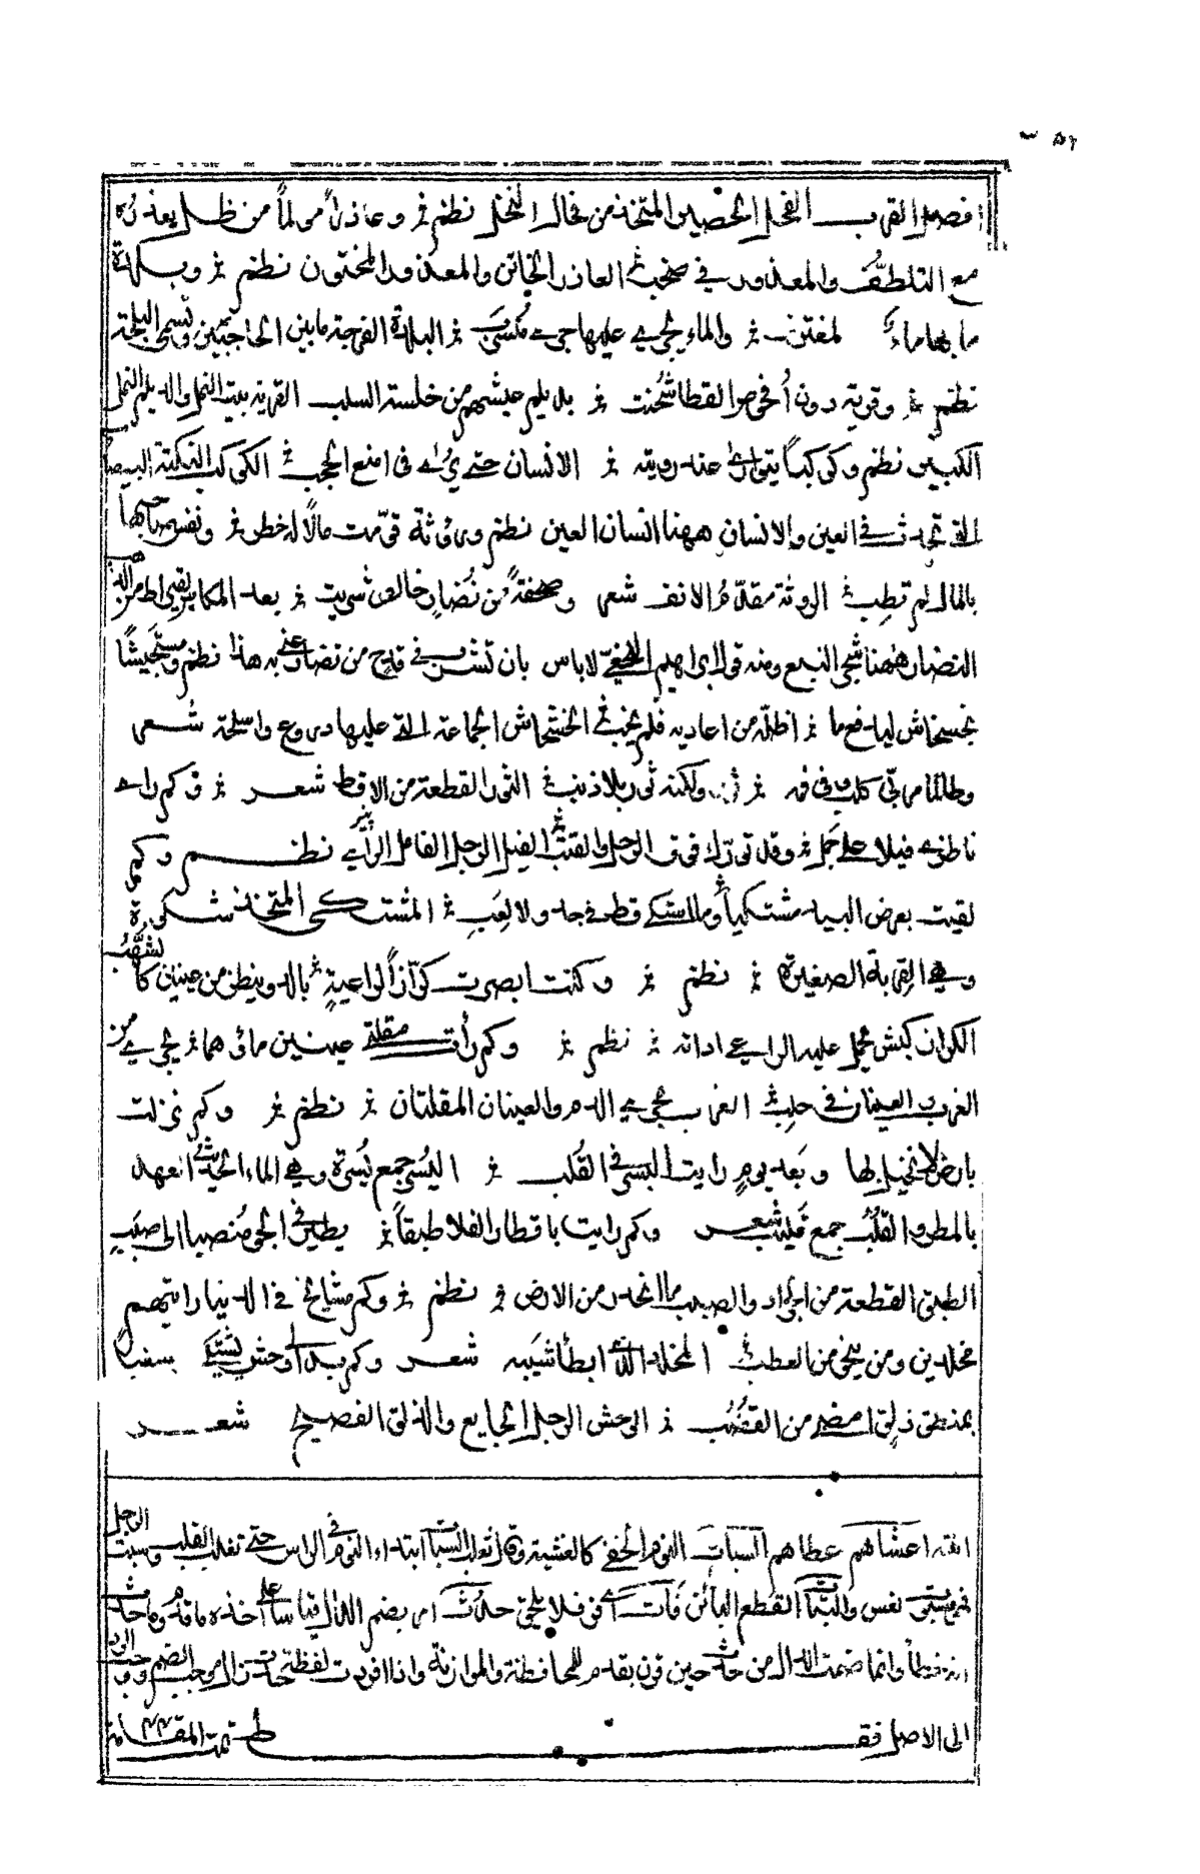 افضل القرب الفحل الحصير المتخذ من فحال النخل نظم وعاذرا مولما من ظل يعذره
مع التلطف والمعذور في صخب العاذر الخاتن والمعذور المختون نظم وبلدة
ما بها ماء لمغترف والماء يجري عليها جري منسرب البلدة الفرجة ما بين الحاجبين وتسمى البلجة
نظم وقرية دون أفحوص القطا شحنت بديلم عيشهم من خلسة السلب القرية بيت النمل والديلم النمل
الكثير نظم وكوكبا يتوارى عند رويته الانسان حتى يرى في امنع الحجب الكوكب النكتة البيضاء
التي تحدث في العين والانسان ههنا انسان العين نظم وروثة قومت مالا له خطر ونفس صاحبها
بالمال لم تطب الروثة مقدم الانف شعر وصحفة من نضار خالص شريت بعد المكاس بقيراط من الذهب
النضار ههنا شجر النبع ومنه قول ابراهيم النخعي لا باس بان تشرب في قدح من نضار عنى به هذا نظم ومستجيشا
بخشخاش ليدفع ما اظله من اعاديه فلم يخب الخشخاش الجماعة التي عليها دروع واسلحة شعر
وطالما مر بي كلب وفي فمه ثور ولكنه ثور بلا ذنب الثور القطعة من الاقط شعر وكم راى
ناظري فيلا على جمل وقد تورك فوق الرحل والقتب الفيل الرجل الفائل الرأي نظم وكم
لقيت بعرض البيد مشتكيا وما اشتكى قط في جد ولا لعب المشتكي المتخذ شكوة
وهي القربة الصغيرة نظم وكنت ابصرت كرازا لراعية بالدو ينظر من عينين كالشهب
الكراز كبش يحمل عليه الراعي اداته نظم وكم رأت مقلتي عينين ماؤهما يجري من
الغرب والعينان في حلب الغرب مجرى الدمع والعينان المقلتان نظم وكم نزلت
بارض لا نخيل بها وبعد يوم رايت البسر في القلب البسر جمع بسرة وهي الماء الحديث العهد
بالمطر والقلب جمع قليب شعر وكم رايت باقطار الفلا طبقا يطير في الجو منصبا الى صبب
الطبق القطعة من الجراد والصبب ما انحدر من الارض نظم وكم مشايخ في الدنيا رايتهم
مخلدين ومن ينجو من العطب المخلد الذي ابطأ شيبه شعر وكم بدا لي وحش يشتكي سغبا
بمنطق ذلق امضى من القضب الوحش الرجل الجايع والذلق الفصيح شعر
اغشاهم غطاهم السبات النوم الخفي كالغشية وقال ثعلب السبات ابتداء النوم في الراس حتى تغلب القلب وسبت الرجل
نعس والبتات القطع البائن فات اي فلا يلحق حدث امر بضم الدال قياسا على اخذه ما قدم وما حدث
وانما ضمت الدال من حدث حين قرن بقدم للمحافظة والموازنة واذا افردت لفظة حدث زال موجب الضم ووجب الرد
الى الاصل فقط تمت المقامة ٤٤